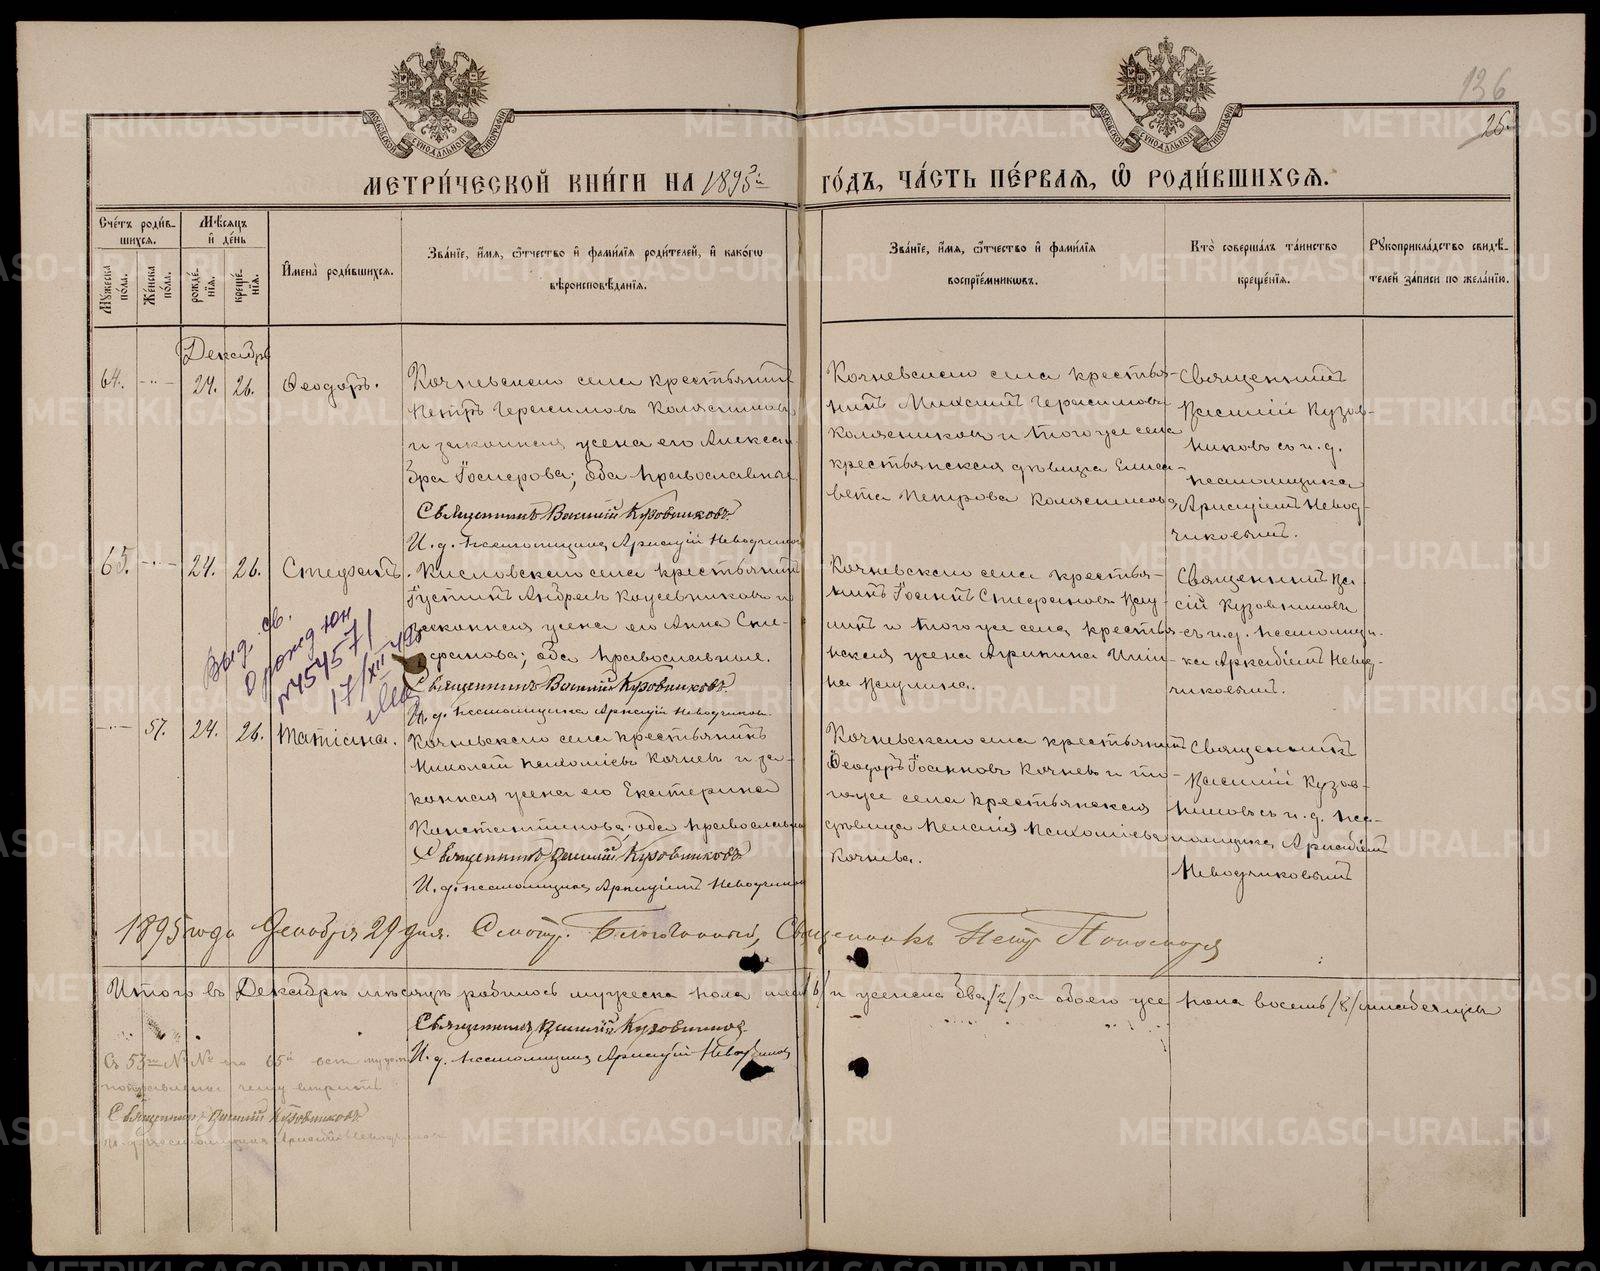 136
25
МОСКОВСКОЙ СѴНОДАЛЬНОЙ ТИПОГРАФІИ
МОСКОВСКОЙ СѴНОДАЛЬНОЙ ТИПОГРАФІИ
МЕТРИ́ЧЕСКОЙ КНИ́ГИ НА 1895й ГО́ДЪ, ЧА́СТЬ ПЕ́РВАЯ, Ѡ РОДИ́ВШИХСЯ.
Сче́тъ роди́в-
шихся.
Мѣ́сяцъ
и́ де́нь
Мꙋ́жеска по́ла.
Же́нска по́ла.
рожде́нїя.
креще́нїя.
И́мена̀ роди́вшихся.
Зва́нїе, и́мя, ѻ́тчество и́ фами́лїя роди́телей, и́ како́гѡ
вѣроисповѣ́данїя.
Зва́нїе, и́мя, ѻ́тчество и́ фами́лїя
воспрїе́мникѡвъ.
Кто̀ соверша́лъ та́инство
креще́нїя.
Рꙋкоприкла́дство свидѣ́-
телей за́писи по жела́нїю.
Декабрь
64. - ·· - 24. 26. Ѳеодоръ.
Кочневскаго села крестьянинъ
Петръ Герасимовъ Колясниковъ
и законная жена его Алексан
дра Гасперова; оба православные
Священникъ Василій Кузовниковъ.
И. д. псаломщика Аркадій Неводчиков
Кочневскаго села крестья-
нинъ Михаилъ Герасимовъ
Колясниковъ и того же села
крестьянская дѣвица Елиса-
вета Петрова Колясникова
Священникъ
Василій Кузов-
никовъ съ и. д.
псаломщика
Аркадіемъ Невод-
чиковымъ.
65. - ·· - 24. 26. Стефанъ.
Кисловскаго села крестьянинъ
Густинъ Андреевъ Кожевниковъ и
законная жена его Анна Сте-
фанова; оба православные.
Священникъ Василій Кузовниковъ.
И. д. псаломщика Аркадій Неводчиков.
Кочневскаго села крестья-
нинъ Іоаннъ Стефановъ
и того же села крестья-
нская жена Агрипина
на
Священникъ Ва
сілій Кузовниковъ
съ и. д. псаломщи-
ка Аркадіемъ Невод-
чиковымъ.
Выд. св.
о рожд юн
№ 454571
17/XII-49г
- ·· - 57. 24. 26. Татіана.
Кочневскаго села крестьянинъ
Николай Пахоміевъ Кочневъ и за-
конная жена его Екатерина
Константинова; оба православны
Священникъ Василій Кузовниковъ
И. д. псаломщика Аркадій Неводчиков
Кочневскаго села крестьянинъ
Ѳеодоръ Іоанновъ Кочневъ и то-
гоже села крестьянская
дѣвица Пелагія Пахоміева
Кочнева.
Священникъ
Василій Кузов-
никовъ съ и. д. пса-
ломщика Аркадіемъ
Неводчиковымъ
1895 года Декабря 29 дня. Смотр. Благочинный, Священникъ Петр Пономарев
Итого въ Декабрѣ мѣсяцѣ родилось мужеска пола шесть /6/ и женска два /2/, а обоего же пола восемь /8/ младенцевъ
Священникъ Василій Кузовниковъ.
И. д. псаломщика Аркадій Неводчиков
Съ 53го №№ по 65й
Священникъ Василій Кузовниковъ
И. д. псаломщика Аркадій Неводчиков
METRIKI.GASO-URAL.RU